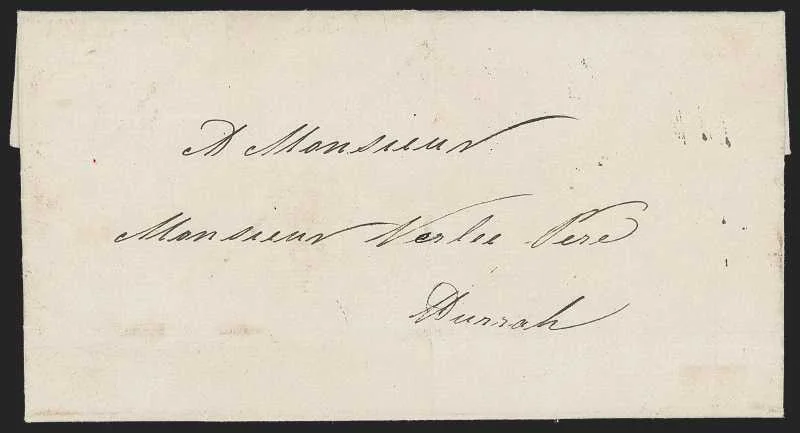 A Monsieur
Monsieur Verlie Père
Durrah